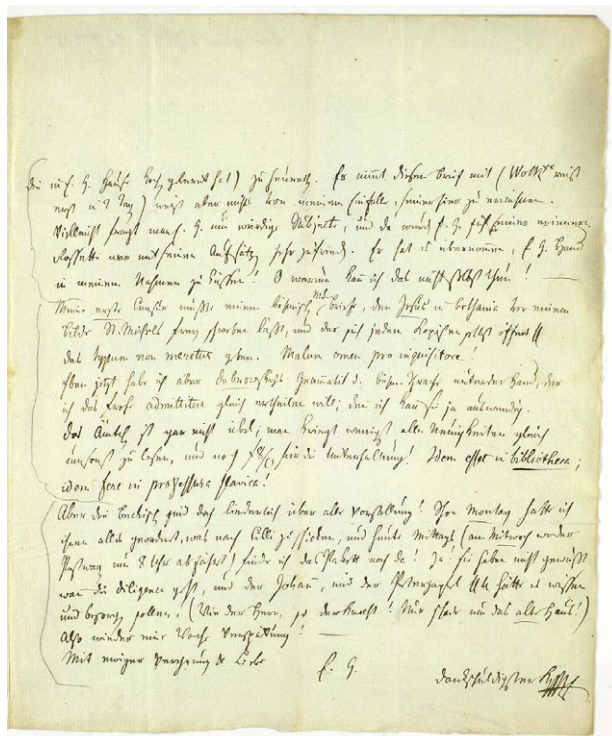 die in E. G. Hause Koch gelernt hat) zu heurath. Er nimmt diesen Brief mit (Wolk weiß
erst in 2 Tag) weiß aber nichts von meinem Einfall, seiner hier zu erwähnen.
Vielleicht fragt man E. G. um würdige Subjekte, und da würd E. G. sich seiner erinnern.
Rosetti war mit seinen Aufsätz sehr zufried. Er hat es übernomen, E. G. Hand
in meinem Nahmen zu küssen! O warum kan ich das nicht selbst thun! —
Meine erste Censur müßte einem böhmisch Briefe, den Jesus in bethania vor einem
bilde St. Michels sterben läßt, und der sich jeden Kopisten selbst öffnet
das typum non meretur geben. Malum omen pro inquisitore!
Eben jetzt hab ich aber Dobrowskys Gramatik d. böhm. Sprache unter der Hand, der
ich das Prof. admittitur gleich ertheilen will; den ich kan sie ja auswendig.
Das Ämtch ist gar nicht übel; man kriegt wenigst alle Neuigkeiten gleich
umsonst zu lesen, und noch für die Unterhaltung! Idem esset in bibliotheca;
idem fere in professura slavica!
Aber die sind doch liederlich über alle Vorstellung! Schon Montag hatte ich
ihnen alles geordnet, was nach Cilli zu schicken, und heute Mittags (am Mitwoch wo der
Postwag um 8 Uhr abfährt) finde ich das Paket noch da! Ja! sie haben nicht gewußt
wan die diligence geht, und der Johan, und der hätte es wissen
und besorg sollen. (Wie der Herr, so der Knecht! Nur schade um das alte Haus!)
Also wieder eine Woche Verspätung! —
Mit ewiger Verehrung & Liebe
E. G.
dankschuldigster